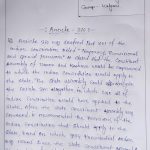 Camp - Kalyani
:- Article - 370 :-
Article 370 was drafted Part XXI of the
Indian constitution titled "Temporary, Transitional
and special provisions". It stated that the Constituent
assembly of Jammu and Kashmir would be empowered
to which the Indian constitution would apply to
the state. The state assembly could
the Article 370 altogether in which case all of
Indian constitution would have applied to the
state. After the state constituent assembly was
convened, it recommended the provisions of the
Indian constitution that should apply to the
state based on which 1954 Presidential order
was issued. Since the state constituent assembly